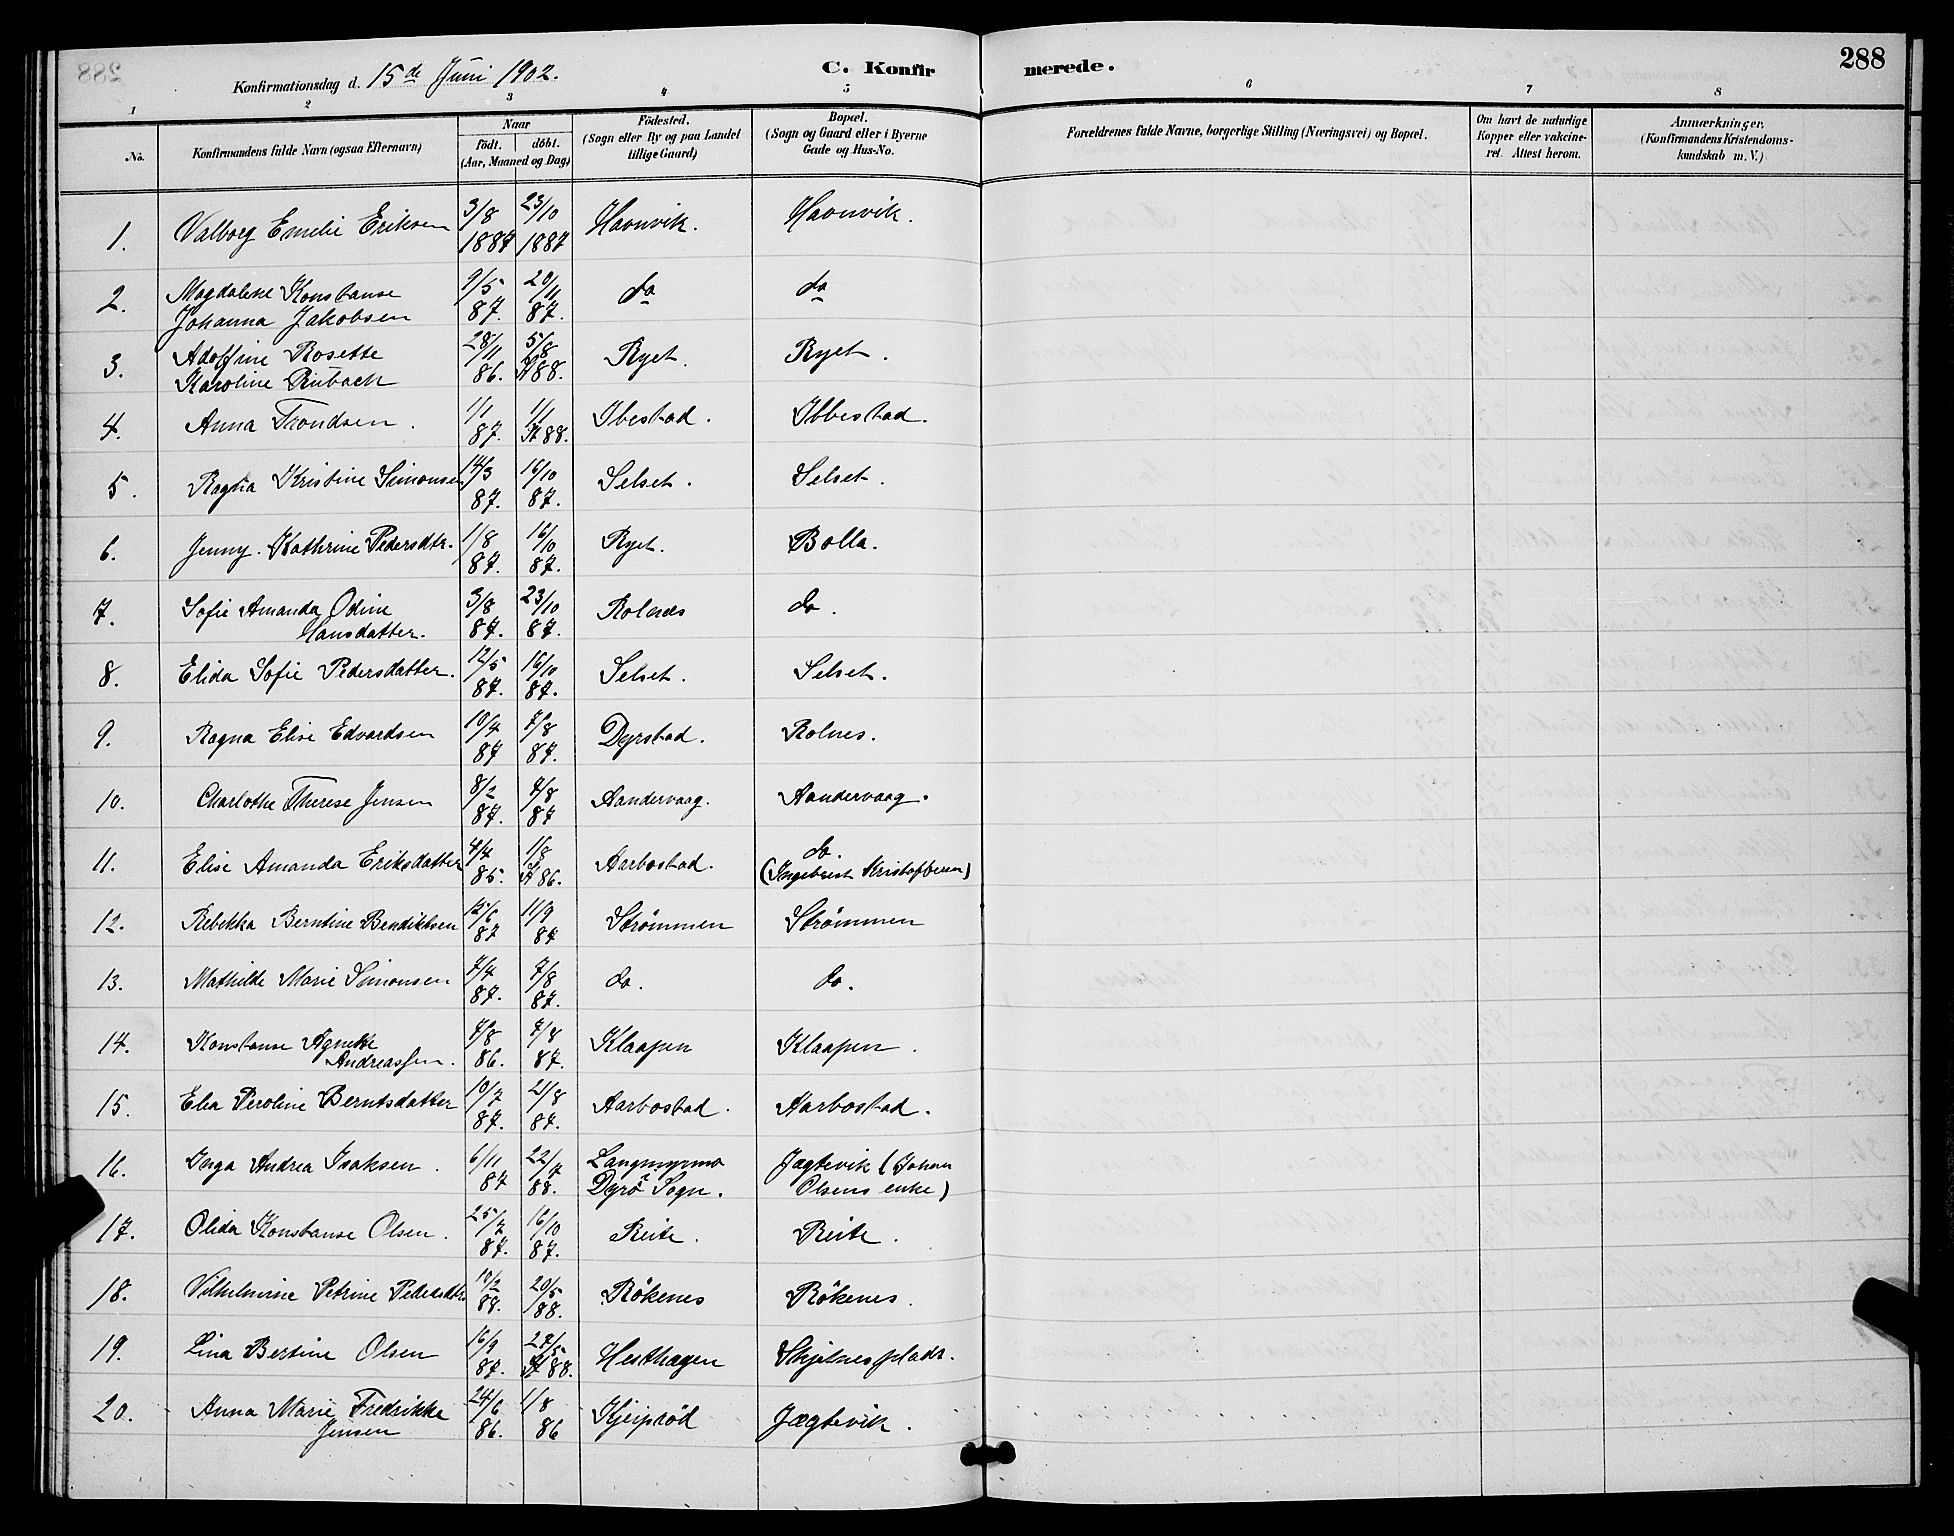 288
Konfirmationsdag d. 15de Juni 1902.
C. Konfirmerede.
1 2 3 4 5 6 7 8
No.
Konfirmandens fulde Navn (ogsaa Efternavn)
Naar
født. døbt.
(Aar, Maaned og Dag)
Fødested.
(Sogn eller By og paa Landet
tillige Gaard)
Bopæl.
(Sogn og Gaard eller i Byerne
Gade og Hus-No.
Forældrenes fulde Navne, borgerlige Stilling (Næringsvei) og Bopæl.
Om havt de naturlige
Kopper eller vakcine-
ret. Attest herom.
Anmærkninger.
(Konfirmandens Kristendoms-
kundskab m. V.)
1. Valborg Emilie Eriksen 3/8 1887 23/10 1887 Havnvik. Havnvik.
2. Magdalene Konstanse
Johanna Jakobsen 9/5 87. 20/11 87. do do
3. Adolfine Rosette
Karoline Rubach 28/11 86. 5/8 88. Ryet. Ryet.
4. Anna Trondsen. 1/1 87. 1/1 88. Ibestad. Ibbestad.
5. Ragna Kristine Simonsen 14/3 87. 16/10 87. Selset. Selset.
6. Jenny. Kathrine Pedersdtr. 1/8 87. 16/10 87. Ryet. Bolla.
7. Sofie Amanda Odine
Hansdatter. 3/8 87. 23/10 87. Rolnes do.
8. Elida Sofie Pedersdatter. 12/5 87. 16/10 87. Selset. Selset.
9. Ragna Elise Edvardsen 10/4 87 7/8 87. Dyrstad. Rolnes.
10. Charlothe Therese Jensen 8/2 87. 7/8 87 Aandervaag. Aandervaag.
11. Elise Amanda Eriksdatter 4/4 85. 1/8 86. Aarbostad. do.
(Ingebrigt Kristoffersen)
12. Rebekka Berntine Bendiktsen 12/6 87 11/9 87 Strømmen Strømmen
13. Mathilde Marie Simonsen 7/4 87. 7/8 87. do. do.
14. Konstanse Agnethe
Andreassen. 7/8 86. 7/8 87. Klaapen Klaapen.
15. Elea Peroline Berntsdatter 10/7 87. 21/8 87. Aarbostad. Aarbostad.
16. Inga Andrea Isaksen. 6/11 87 22/7 88. Langmyrmo
Dyrø Sogn. Jægtevik (Johan
Olsens enke)
17. Olida Konstanse Olsen. 25/7 87. 16/10 87. Reite. Reite.
18. Vilhelmine Petrine Pedersdtr. 10/2 88. 20/5 88. Røkenes Røkenes.
19. Lina Bertine Olsen 16/9 87. 27/5 88. Hesthagen Skjelnesplads.
20. Anna Marie Fredrikke
Jensen 24/6 86. 1/8 86 Kjeiprød Jægtevik.